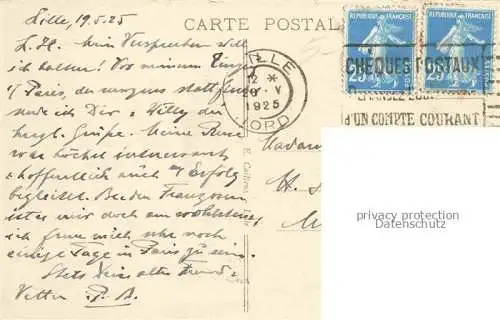 Lille, 19.5.25
CARTE POSTAL
L. H. mein Versprechen will
ich halten! Vor meinem Einzug
i/ Paris, der morgens stattfindet
sende ich Dir & Willy
herzl. Grüße. Meine Reise
war höchst interessant
& hoffentlich auch v/ Erfolg
begleitet. Bei den Franzosen
ist es mir doch am wohlsten,
ich freue mich sehr noch
einige Tage in Paris zu sein.
Stets Dein alter Freund &
Vetter P. B.
LILLE
12 *
V
1925
NORD
REPUBLIQUE FRANÇAISE
25
REPUBLIQUE FRANÇAISE
25
CHEQUES POSTAUX
D'UN COMPTE COURANT
E. Cailteux Lille
Madame
H.
privacy protection
Datenschutz